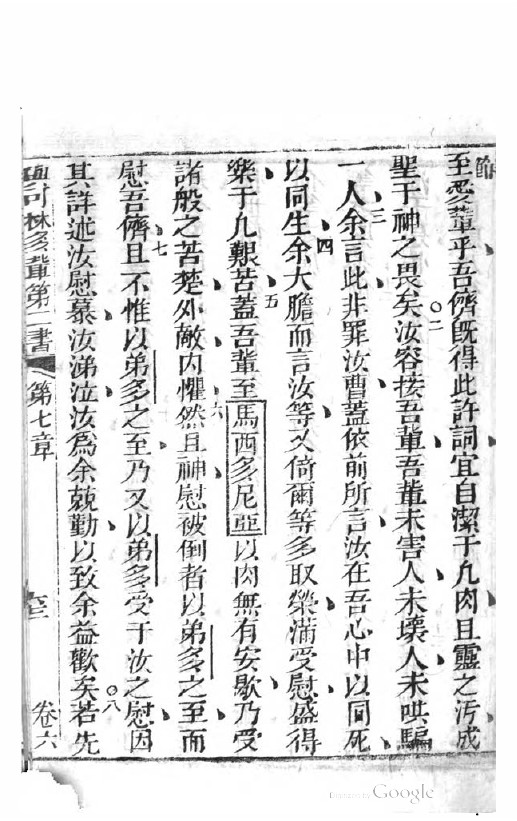 節
至愛輩乎吾儕既得此許詞宜自潔于凡肉且靈之汚成
聖于神之畏矣二汝容接吾輩吾輩未害人未壞人未哄騙
一人三余言此非罪汝曹蓋依前所言汝在吾心中以同死
以同生四余大膽而言汝等又倚爾等多取榮滿受慰盛得
樂于凡艱苦五蓋吾輩至馬西多尼亞以肉無有安歇乃受
諸般之苦楚外敵內懼六然且神慰被倒者以弟多之至而
慰吾儕七且不惟以弟多之至乃又以弟多受于汝之慰因
其詳述汝慰慕汝涕泣汝為余兢勤以致余益歡矣八若先
可林多輩第二書 第七章 卷六
Digitized by Google